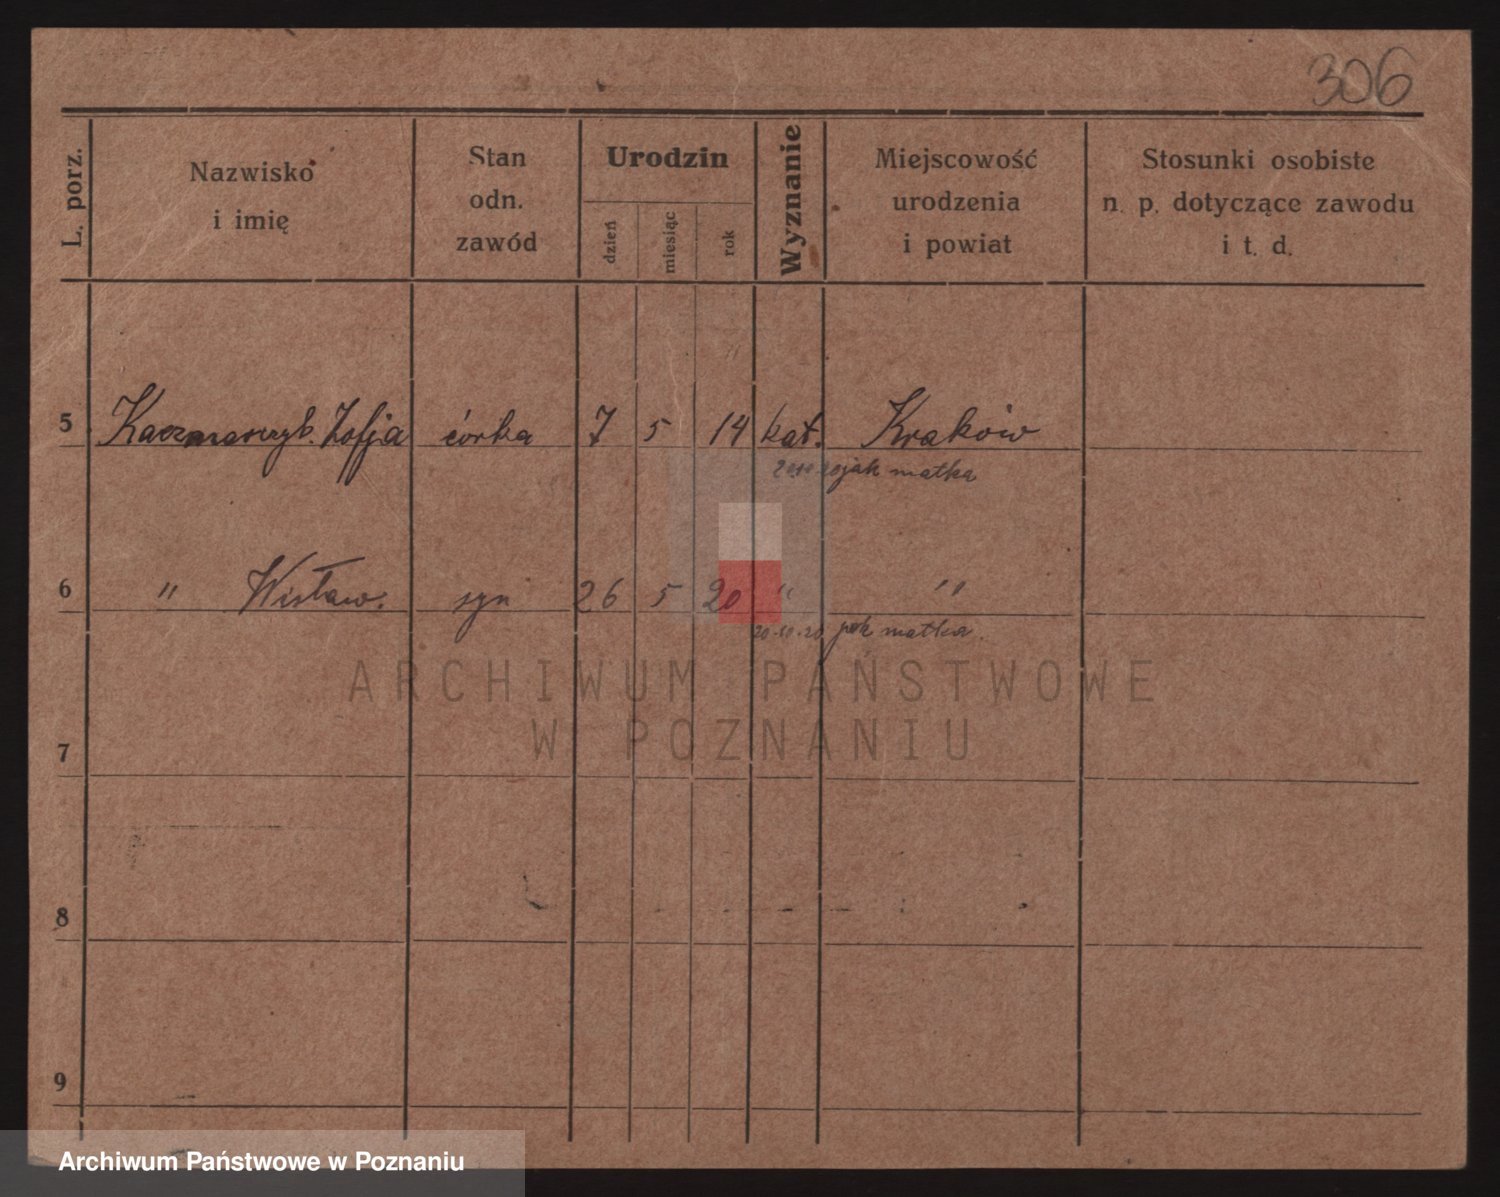 306
L. porz.
Nazwisko
i imię
Stan
odn.
zawód
Urodzin
dzień
miesiąc
rok
Wyznanie
Miejscowość
urodzenia
i powiat
Stosunki osobiste
n. p. dotyczące zawodu
i t. d.
5 Zofja córka 7 5 14 kat. Kraków
jak matka
6 " Wisław. syn 26 5 20 " "
20.10.20 jak matka.
ARCHIWUM PAŃSTWOWE
W POZNANIU
7
8
9
Archiwum Państwowe w Poznaniu